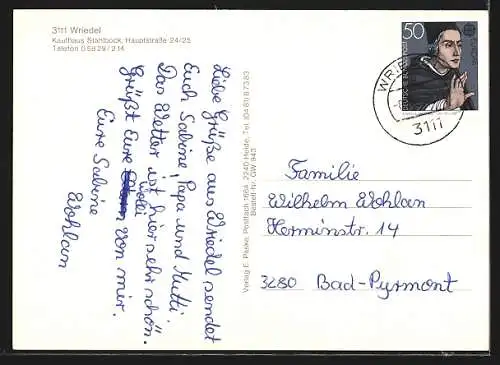 3111 Wriedel
Kaufhaus Stahlbock, Hauptstraße 24/25
Telefon 05829/214
Liebe Grüße aus Wriedel sendet
Euch Sabine, Papa und Mutti.
Das Wetter ist hier sehr schön.
Grüßt Eure von mir.
Eure Sabine
Wohlan
Verlag E. Paske, Postfach 1664, 2240 Heide, Tel. (0481) 87383
Bestell-Nr. GW 943
50
DEUTSCHE BUNDESPOST
EUROPA
WRIE
3111
Familie
Wilhelm Wohlan
Herminstr. 14
3280 Bad-Pyrmont